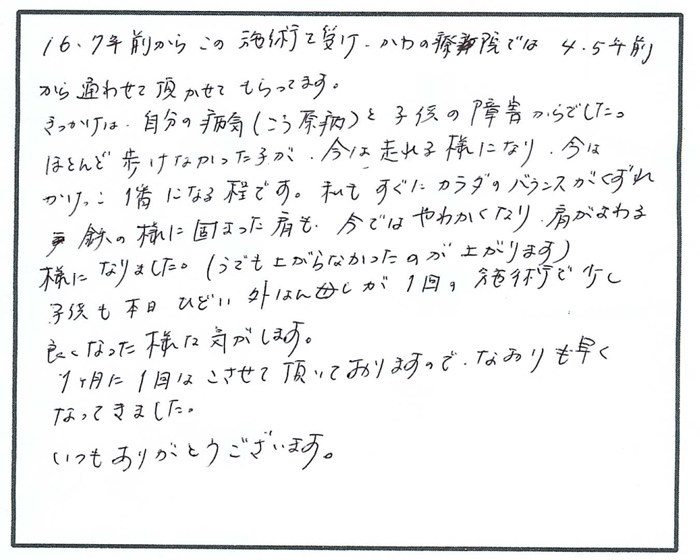 16.7年前からこの施術を受け、かわの療術院では4.5年前
から通わせて頂かせてもらってます。
きっかけは、自分の病気(こう原病)と子供の障害からでした。
ほとんど歩けなかった子が、今は走れる様になり、今は
かけっこ1番になる程です。私もすぐにカラダのバランスがくずれ
鉄の様に固まった肩も、今ではやわかくなり、肩がまわる
様になりました。(うでも上がらなかったのが上がります)
子供も本日ひどい外はん母しが1回の施術で少し
良くなった様な気がします。
1ヶ月に1回はこさせて頂いておりますので、なおりも早く
なってきました。
いつもありがとうございます。